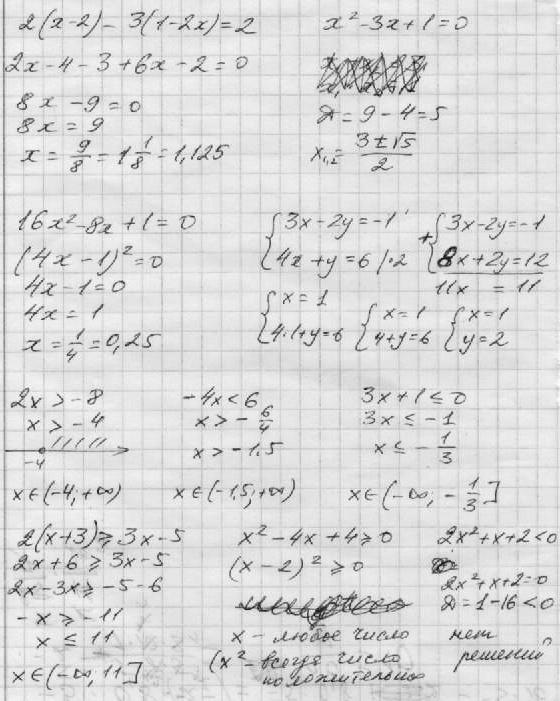 2(x-2) - 3(1-2x) = 2
2x - 4 - 3 + 6x - 2 = 0
8x - 9 = 0
8x = 9
x = 9/8 = 1 1/8 = 1,125
x² - 3x + 1 = 0
Д = 9 - 4 = 5
x₁,₂ = (3 ± √5)/2
16x² - 8x + 1 = 0
(4x - 1)² = 0
4x - 1 = 0
4x = 1
x = 1/4 = 0,25
{ 3x - 2y = -1
4x + y = 6 |·2
+ { 3x - 2y = -1
8x + 2y = 12
11x = 11
{ x = 1
4·1 + y = 6
{ x = 1
4 + y = 6
{ x = 1
y = 2
2x > -8
x > -4
-4
x ∈ (-4; +∞)
-4x < 6
x > - 6/4
x > -1,5
x ∈ (-1,5; +∞)
3x + 1 ≤ 0
3x ≤ -1
x ≤ - 1/3
x ∈ (-∞; - 1/3]
2(x+3) ≥ 3x - 5
2x + 6 ≥ 3x - 5
2x - 3x ≥ -5 - 6
-x ≥ -11
x ≤ 11
x ∈ (-∞, 11]
x² - 4x + 4 ≥ 0
(x - 2)² ≥ 0
x - любое число
(x² - всегда число
положительно
2x² + x + 2 < 0
2x² + x + 2 = 0
Д = 1 - 16 < 0
нет
решений